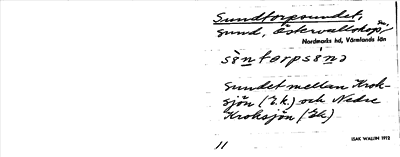 Sundtorpsundet,
sund, Östervallskog, sn,
Nordmarks hd, Värmlands län
sè̀ntorpsén̄ə
sundet mellan Krok-
sjön (E.k.) och Nedre
Kroksjön (Ek)
ISAK WALLIN 1972
11